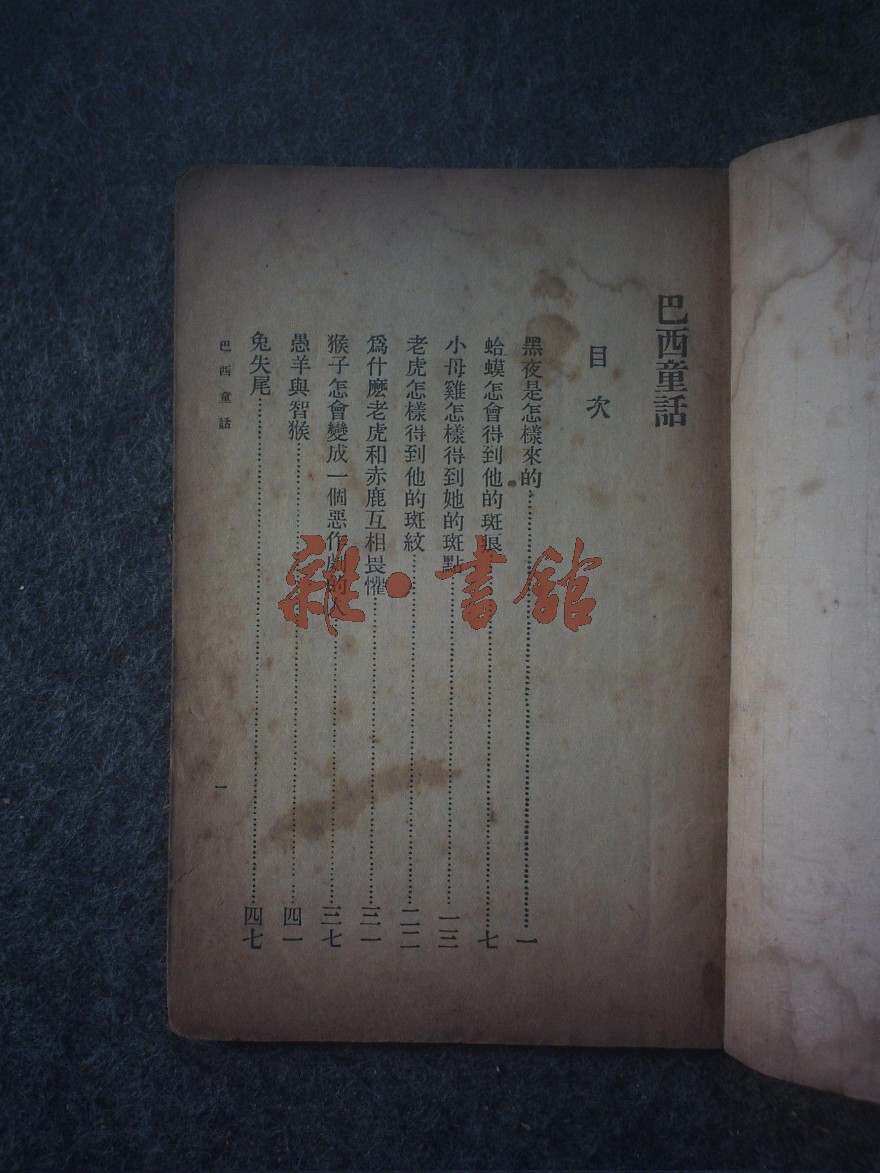 巴西童話
目次
黑夜是怎樣來的……一
蛤蟆怎會得到他的斑痕……七
小母雞怎樣得到她的斑點……一三
老虎怎樣得到他的斑紋……二二
爲什麽老虎和赤鹿互相畏懼……三一
猴子怎會變成一個惡作劇的……三七
愚羊與智猴……四一
兔失尾……四七
巴西童話
一
雜·書館